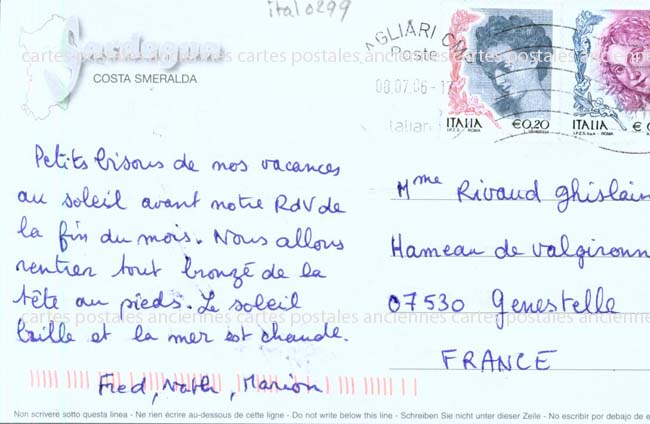 ital0299
Sardegna
COSTA SMERALDA
AGLIARI CM
Poste
08.07.06-1
italian
ITALIA
€0,20
I.P.Z.S. - ROMA
ITALIA
€
I.P.Z.S. - ROMA
cartes postales anciennes cartes postales anciennes cartes postales anciennes
Petits bisous de nos vacances
au soleil avant notre RdV de
la fin du mois. Nous allons
rentrer tout bronzé de la
tête au pieds. Le soleil
brille et la mer est chaude.
Fred, Nath, Marion
Mme Rivaud Ghislain
Hameau de Valgironn
07530 Genestelle
FRANCE
cartes postales anciennes cartes postales anciennes cartes postales anciennes
Non scrivere sotto questa linea - Ne rien écrire au-dessous de cette ligne - Do not write below this line - Schreiben Sie nicht unter dieser Zeile - No escribir por debajo de e